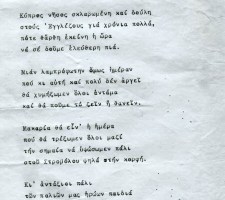 Κύπρος νῆσος σκλαρωμένη καί δούλη
στούς Ἐγγλέζους γιά χρόνια πολλά,
πότε θἄρθη ἐκείνη ἡ ὥρα
νά σέ δοῦμε ἐλεύθερη πιά.
Μιάν λαμπρόφωτην ὅμως ἡμέραν
πού κι αὐτή καί πολύ δέν ἀργεῖ
θά χυμήξωμεν ὅλοι ἀντάμα
καί θά ποῦμε τό ζεῖν ἤ θανεῖν.
Μακαρία θά εἶν' ἡ ἡμέρα
πού θά τρέξωμεν ὅλοι μαζί
τήν σημαία νά ὑψώσωμεν πάλι
στοῦ Στροβάλου ψηλά στήν κορφή.
Κι' ἀντάξιοι πάλι
τῶν παλιῶν μας ἡρώων παιδιά